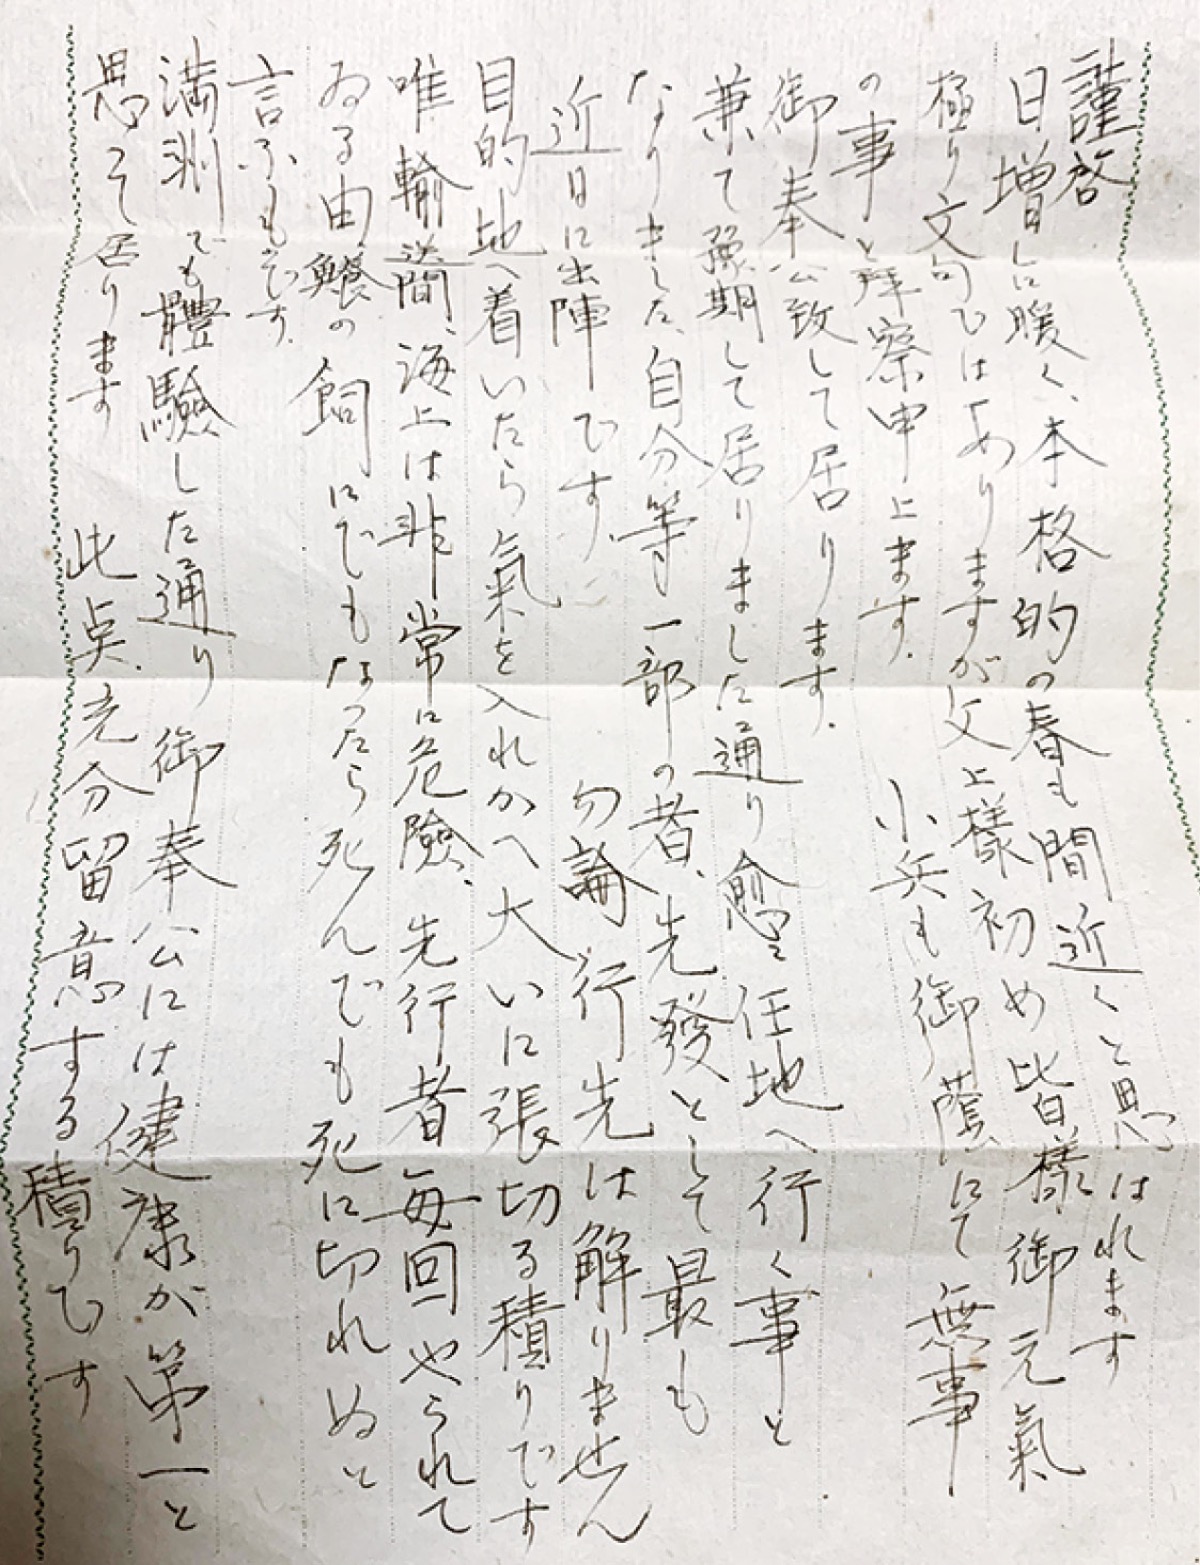 謹啓
日増しに暖く、本格的の春も間近くと思はれます
極り文句ではありますが父上様初め皆様御元氣
の事と拝察申上ます。　小兵も御蔭にて無事
御奉公致して居ります。
兼て豫期して居りました通り愈々任地へ行く事と
なりました、自分等一部の者、先發として最も
近日に出陣です。　勿論行先は解りません
目的地へ着いたら氣を入れかへ大いに張切る積りです
唯輸送間、海上は非常に危險、先行者毎回やられて
ゐる由、鱶の飼にでもなったら死んでも死に切れぬと
言ふものです。
満洲でも體驗した通り御奉公には健康が第一と
思って居ります　此点、充分留意する積りです